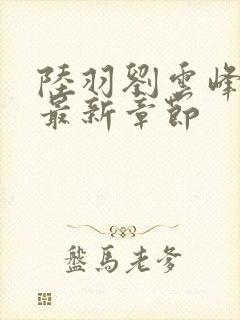 陸羽劉雲峰
最新章節
盤馬老爹